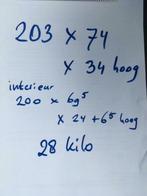 203 x 74
x 34 hoog
interieur
200 x 69⁵
x 24 + 6⁵ hoog
28 kilo